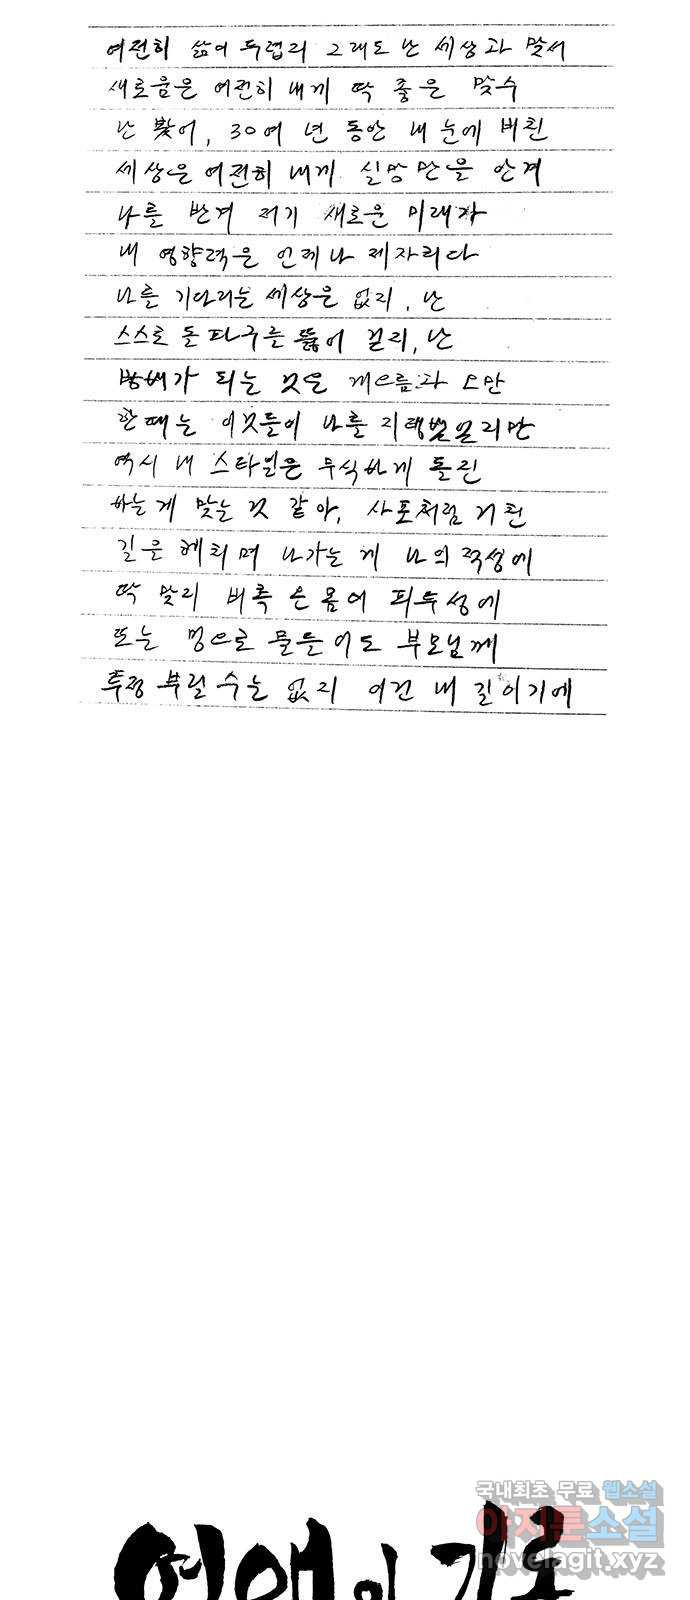 여전히 삶이 두렵지 그래도 난 세상과 맞서
새로움은 여전히 내게 딱 좋은 맞수
난 봤어, 30여 년 동안 내 눈에 비친
세상은 여전히 내게 실망만을 안겨
나를 반겨 저기 새로운 미래가
내 영향력은 언제나 제자리다
나를 기다리는 세상은 없지, 난
스스로 돌파구를 뚫어 걸지, 난
방해가 되는 것은 게으름과 오만
한때는 이것들이 나를 지탱했을지만
역시 내 스타일은 무식하게 돌진
하는 게 맞는 것 같아, 사포처럼 거친
길을 헤치며 나가는 게 나의 적성에
딱 맞지 비록 온몸이 피투성에
또는 멍으로 물들어도 부모님께
투정 부릴 수는 없지 이건 내 길이기에
국내최초 무료 웹소설
아지툰소설
novelagit.xyz
연애의 기록